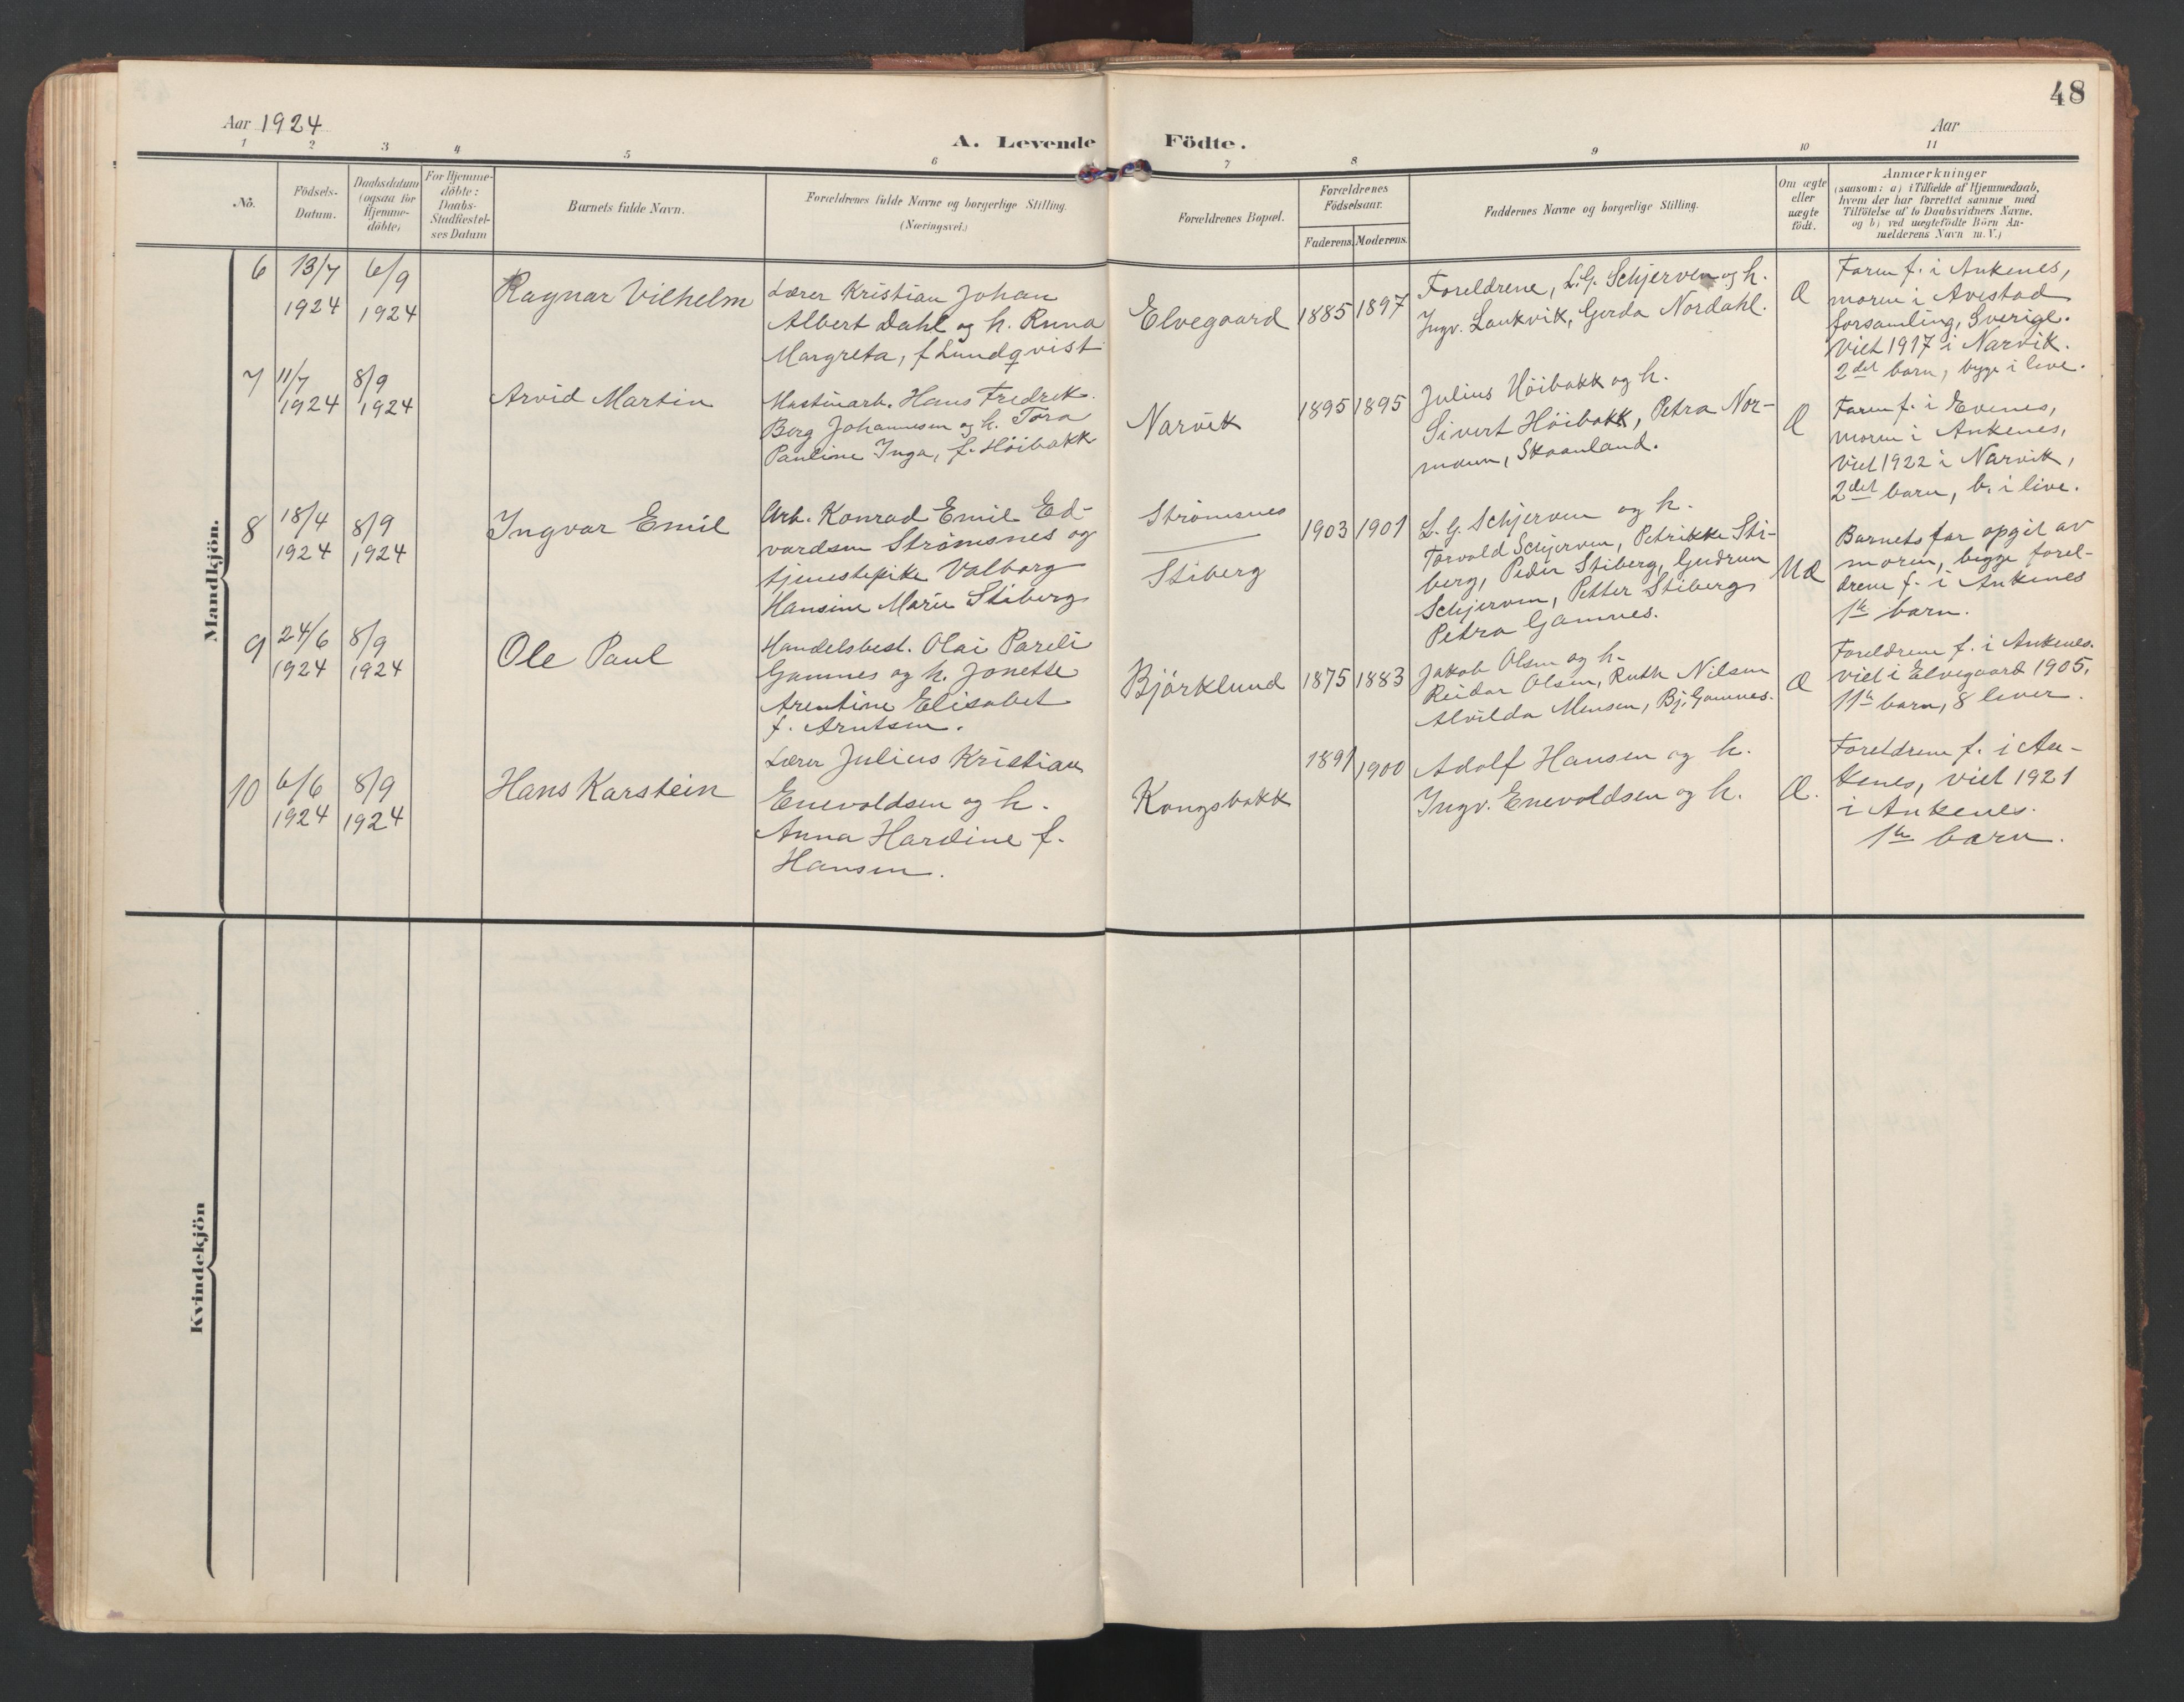 48
Aar 1924
A. Levende Födte.
Aar
1 2 3 4 5 6 7 8 9 10 11
No.
Födsels-
Datum.
Daabsdatum
(ogsaa for
Hjemme-
döbte)
For Hjemme-
döbte:
Daabs-
Stadfæstel-
ses Datum
Barnets fulde Navn.
Forældrenes fulde Navne og borgerlige Stilling.
(Næringsvei.)
Forældrenes Bopæl.
Forældrenes
Födselsaar.
Faderens. Moderens.
Faddernes Navne og borgerlige Stilling.
Om ægte
eller
uægte
födt.
Anmærkninger
(saasom: a) i Tilfælde af Hjemmedaab,
hvem der har forrettet samme med
Tilföielse af to Daabsvidners Navne,
og b) ved uægtefödte Börn An-
melderens Navn m. V.)
Mandkjön.
6
13/7
1924
6/9
1924
Ragnar Vilhelm
Lærer Kristian Johan
Albert Dahl og h. Runa
Margreta, f Lundqvist
Elvegaard
1885
1897
Foreldrene, L. G. Schjerven og h.
Ingv. Laukvik, Gerda Nordahl.
Æ
Faren f. i Ankenes,
moren i Avestad
forsamling, Sverige.
Viet 1917 i Narvik.
2det barn, bygge i live.
7
11/7
1924
8/9
1924
Arvid Martin
Maskinarb. Hans Fredrik
Berg Johannesen og h. Tora
Pauline Inga, f. Höibakk
Narvik
1895
1895
Julius Höibakk og h.
Sivert Höibakk, Petra Nor-
mann, Skaanland.
Æ
Faren f. i Evenes,
moren i Ankenes,
Viet 1922 i Narvik,
2det barn, b. i live.
8
18/4
1924
8/9
1924
Ingvar Emil
Arb. Konrad Emil Ed-
vardsen Strömsnes og
tjenestepike Valborg
Hansine Marie Stiberg
Strömsnes
Stiberg
1903
1901
L. G. Schjerven og h.
Torvald Schjerven, Petrikke Sti-
berg, Peder Stiberg, Gudrun
Schjerven, Petter Stiberg
Petra Gamnes.
Uæ
Barnets far opgit av
moren, begge forel-
drene f. i Ankenes
1te barn.
9
24/6
1924
8/9
1924
Ole Paul
Handelsbest. Olai Pareli
Gamnes og h. Jonette
Arentine Elisabet
f. Arntsen.
Björklund
1875
1883
Jakob Olsen og h.
Reidar Olsen, Ruth Nilsen
Alvilda Monsen, Bj. Gamnes.
Æ
Foreldrene f. i Ankenes.
viet i Elvegaard 1905.
11te barn, 8 lever.
10
6/6
1924
8/9
1924
Hans Karstein
Lærer Julius Kristian
Enevoldsen og h.
Anna Hardine f.
Hansen.
Kongsbakk
1891
1900
Adolf Hansen og h.
Ingv. Enevoldsen og h.
Æ.
Foreldrene f. i An-
kenes, viet 1921
i Ankenes.
1te barn.
Kvindekjön